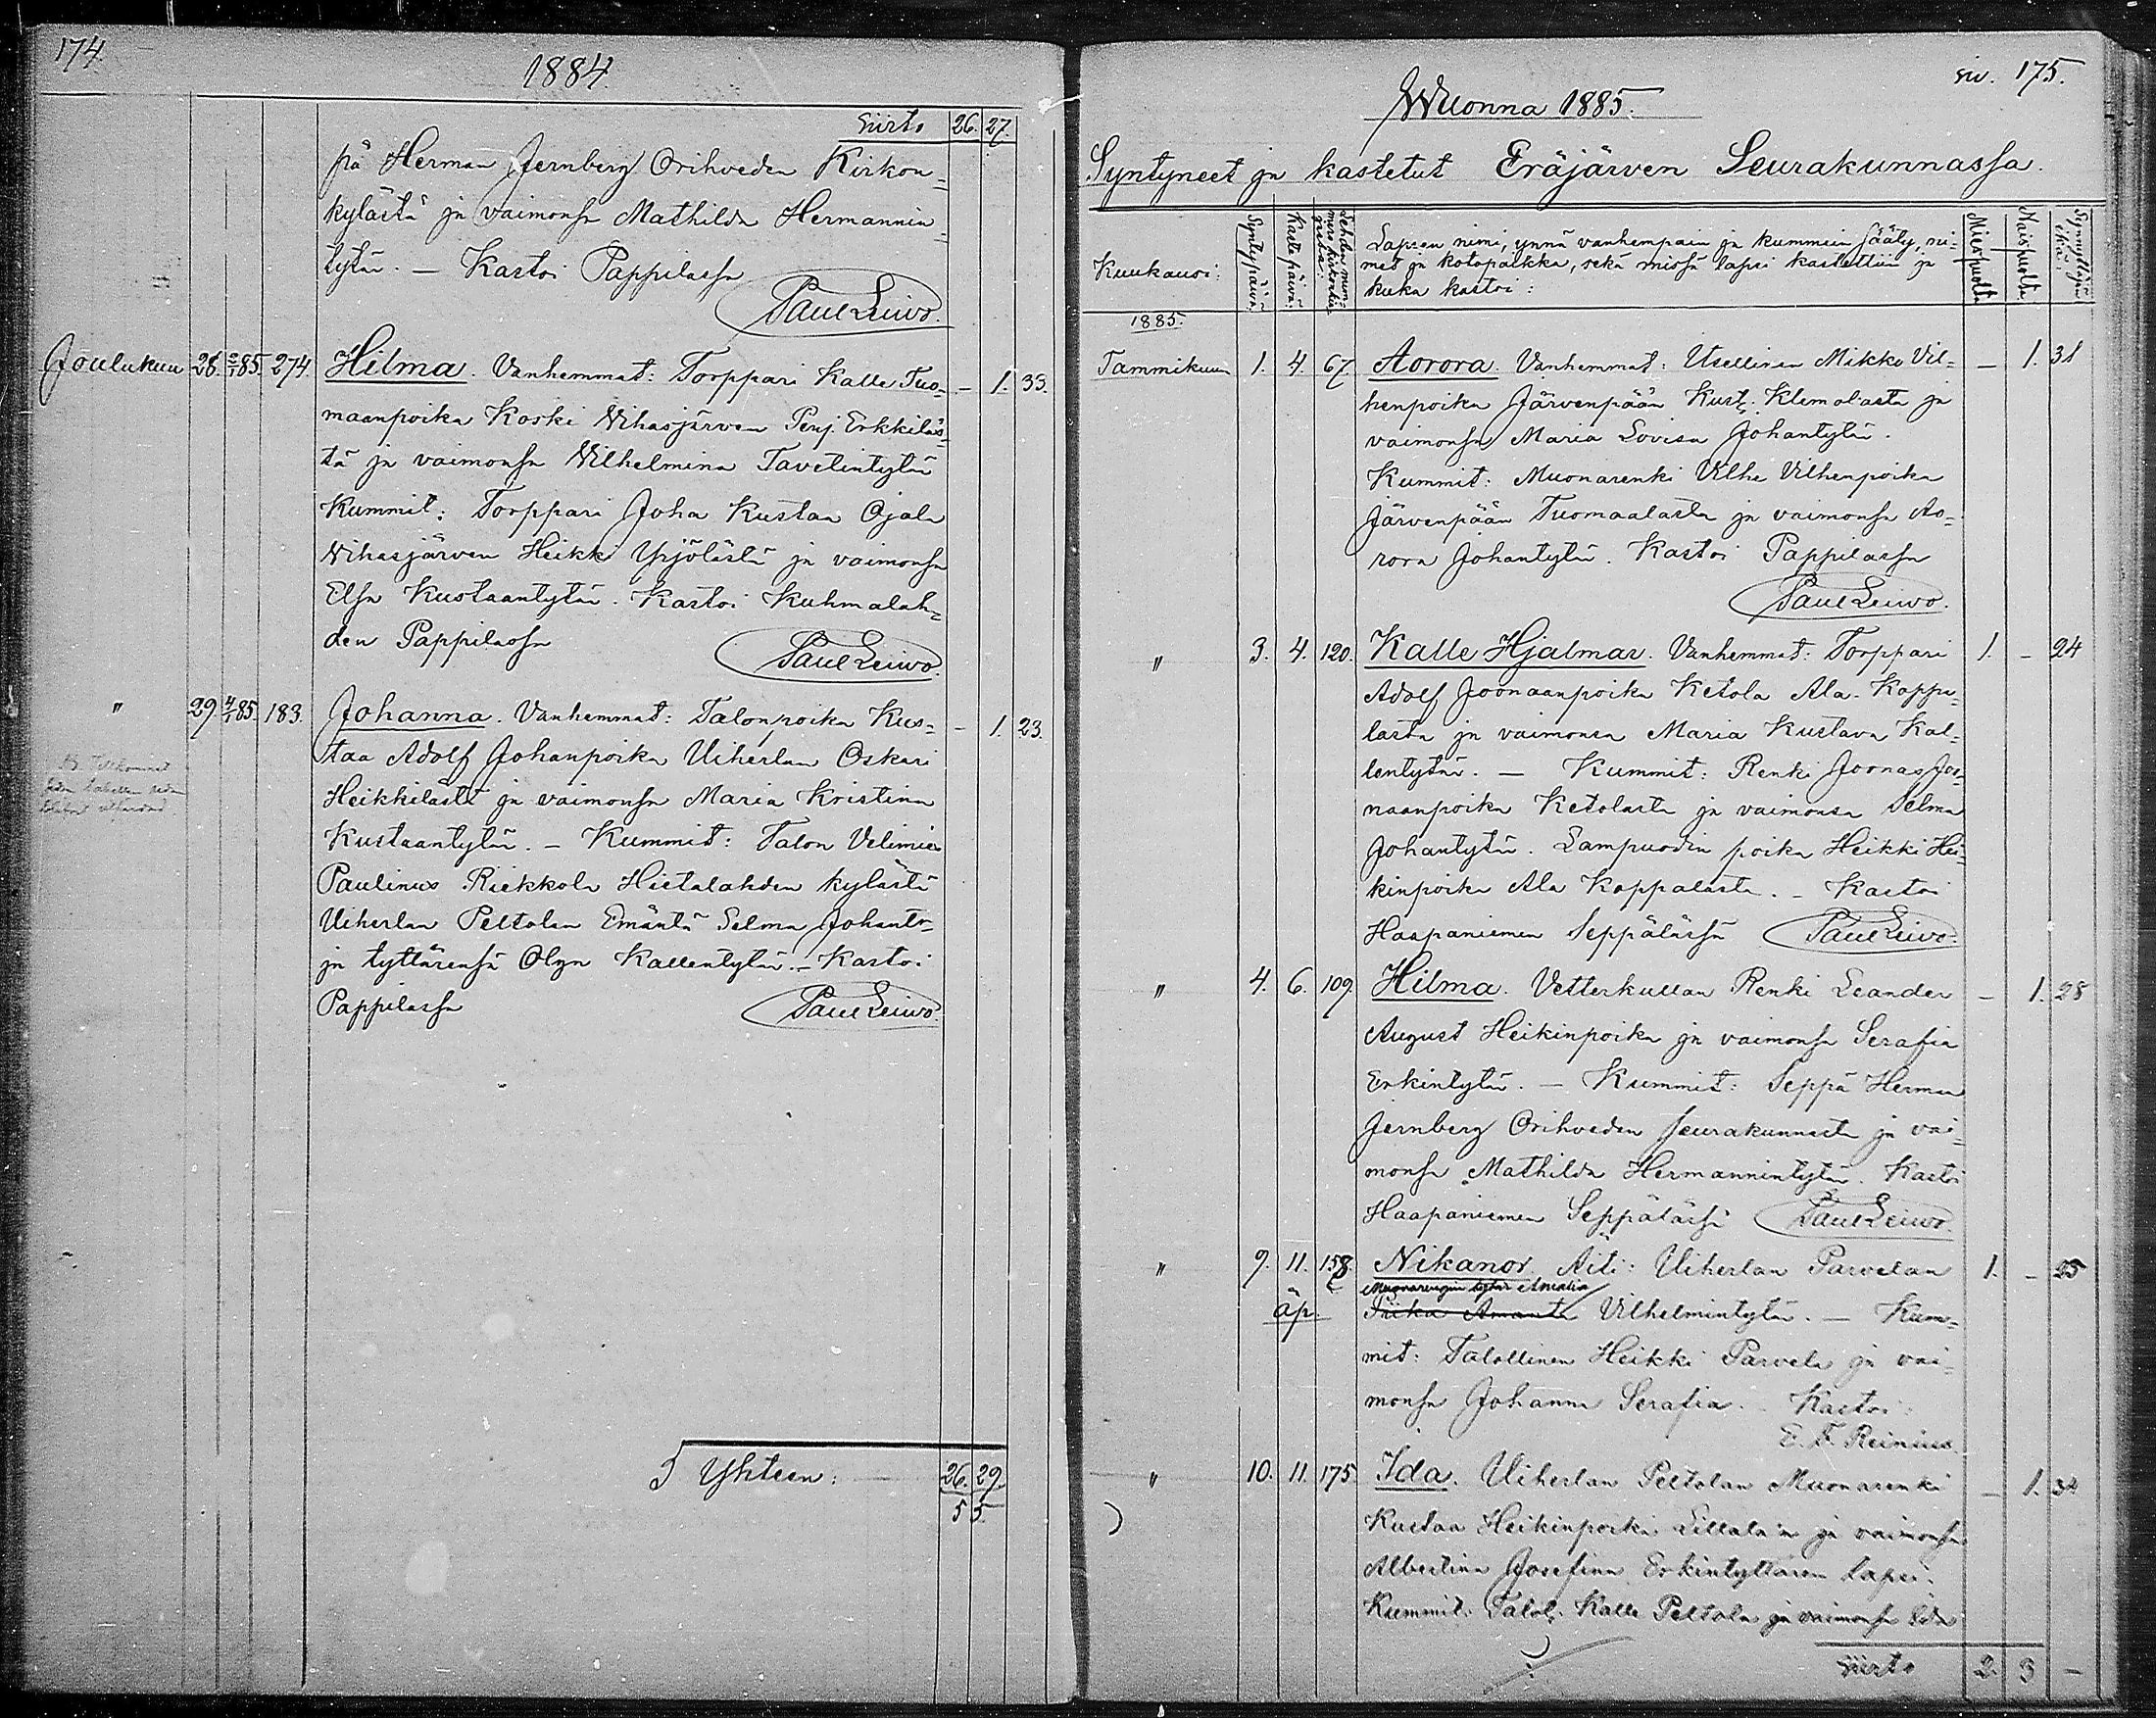 174.
1884.
Siirto 26. 27.
pä Herman Jernberg Orihveden Kirkon-
kylästä ja vaimonsa Mathilda Hermannin
tytär. — Kastoi Pappilassa
Paul Leivo.
Joulukuu 28. 2/1 85. 274. Hilma. Vanhemmat: Torppari Kalle Tuo- — 1. 33.
maanpoika Koski Wihasjärven Penj. Erkkiläs-
tä ja vaimonsa Wilhelmina Tavetintytär
Kummit: Torppari Joha Kustaa Ojala
Wihasjärven Heikki Yrjölästä ja vaimonsa
Elsa Kustaantytär. Kastoi Kuhmalah-
den Pappilassa
Paul Leivo.
" 29. 4/1 85. 183. Johanna. Vanhemmat: Talonpoika Kus- — 1. 23.
taa Adolf Johanpoika Uiherlan Oskari
Heikkilästä ja vaimonsa Maria Kristina
Kustaantytär. — Kummit: Talon Velimies
Paulinus Riekkola Hietalahden kylästä
Uiherlan Peltolan Emäntä Selma Johantr
ja tyttärensä Olga Kallentytär. — Kastoi
Pappilassa Paul Leivo.
Yhteen: 26. 29.
55.
siv. 175.
Wuonna 1885.
Syntyneet ja kastetut Eräjärven Seurakunnassa.
Kuukausi:
Syntypäivä:
Kastepäivä:
Lapsen nimi, ynnä vanhempain ja kummein sääty, ni-
met ja kotopaikka, sekä missä lapsi kastettiin ja
kuka kastoi:
Miespuolta
Naispuolta
Synnyttäjän ikä:
1885.
Tammikuu 1. 4. 67. Aorora. Vanhemmat: Itsellinen Mikko Vil- — 1. 31
henpoika Järvenpään Kust. Klemolasta ja
vaimonsa Maria Lovisa Johantytär.
Kummit: Muonarenki Vilhe Vilhenpoika
Järvenpään Tuomaalasta ja vaimonsa Ao-
rora Johantytär. Kastoi Pappilassa
Paul Leivo.
" 3. 4. 120. Kalle Hjalmar. Vanhemmat: Torppari 1. — 24
Adolf Joonaanpoika Ketola Ala-Koppa-
lasta ja vaimonsa Maria Kustava Kal-
lentytär. — Kummit: Renki Joonas Joo-
naanpoika Ketolasta ja vaimonsa Selma
Johantytär. Lampuodin poika Heikki Hei-
kinpoika Ala Koppalasta. — Kastoi
Haapaniemen Seppälässä Paul Leivo.
" 4. 6. 109. Hilma. Vetterkullan Renki Leander — 1. 28
August Heikinpoika ja vaimonsa Serafia
Erkintytär. — Kummit: Seppä Herman
Jernberg Orihveden seurakunnasta ja vai-
monsa Mathilda Hermannintytär. Kastoi
Haapaniemen Seppälässä Paul Leivo.
" 9. 11. 158. Nikanor. Äiti: Uiherlan Parvelan 1. — 25
Muonarengin tytär Amalia
äp. Fiika Amanta Vilhelmintytär. — Kum-
mit: Talollinen Heikki Parvela ja vai-
monsa Johanna Serafia. — Kastoi:
E. F. Reinius.
" 10. 11. 175. Ida. Uiherlan Peltolan Muonarenki — 1. 34
Kustaa Heikinpoika ja vaimonsa
Albertina Josefina Erkintyttären lapsi.
Kummit: Talol. Kalle Peltola ja vaimonsa
Siirto 2. 3 —